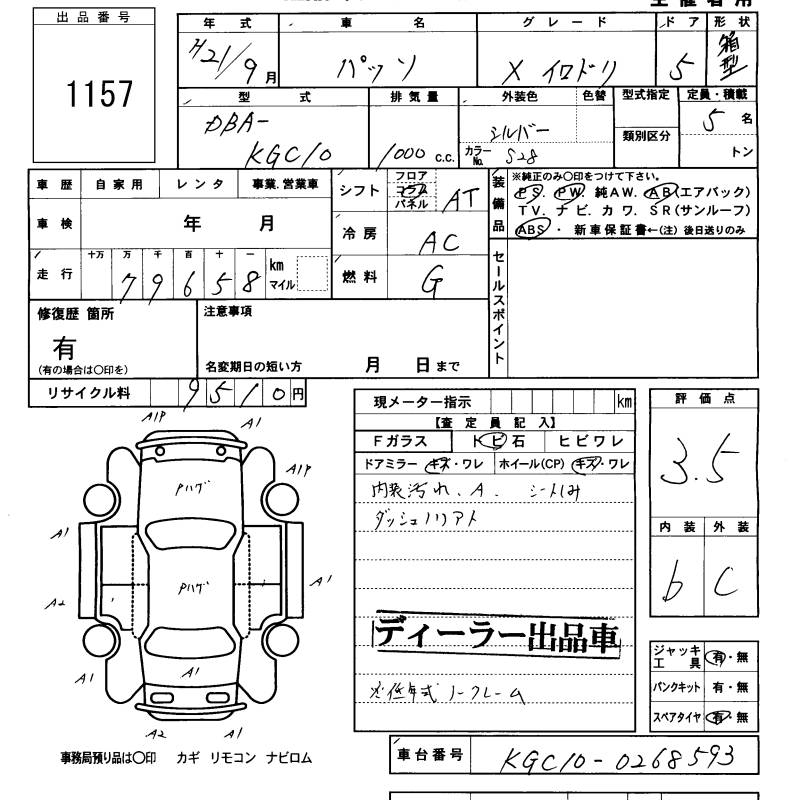 出品番号
1157
年式 車名 グレード ドア 形状
H21/9月 パッソ X イロドリ 5 箱型
型式 排気量 外装色 色替 型式指定 定員・積載
DBA- KGC10 1000 c.c. シルバー カラーNo. S28 類別区分 5名
トン
車歴 自家用 レンタ 事業.営業車
車検 年 月
走行 十万 万 千 百 十 一 km マイル
79658
シフト フロア コラム パネル AT
冷房 AC
燃料 G
装備品 ※純正のみ○印をつけて下さい。
PS. PW 純AW. AB(エアバック)
TV. ナビ. カワ. SR(サンルーフ)
ABS・ 新車保証書←(注) 後日送りのみ
セールスポイント
修復歴 箇所
有
(有の場合は○印を)
注意事項
名変期日の短い方 月 日まで
リサイクル料 9510円
現メーター指示 km
【査定員記入】
Fガラス トビ石 ヒビワレ
ドアミラー キズ・ワレ ホイール(CP) キズ・ワレ
内装汚れ.A. シートしみ
ダッシュノリアト
ディーラー出品車
評価点
3.5
内装 外装
b C
ジャッキ工具 有・無
パンクキット 有・無
スペアタイヤ 有・無
A1P A1
A1P
Pハゲ
A1
Pハゲ
A2 A1
A1
A1 A1
A2 A1
事務局預り品は○印 カギ リモコン ナビロム
車台番号 KGC10-0268593